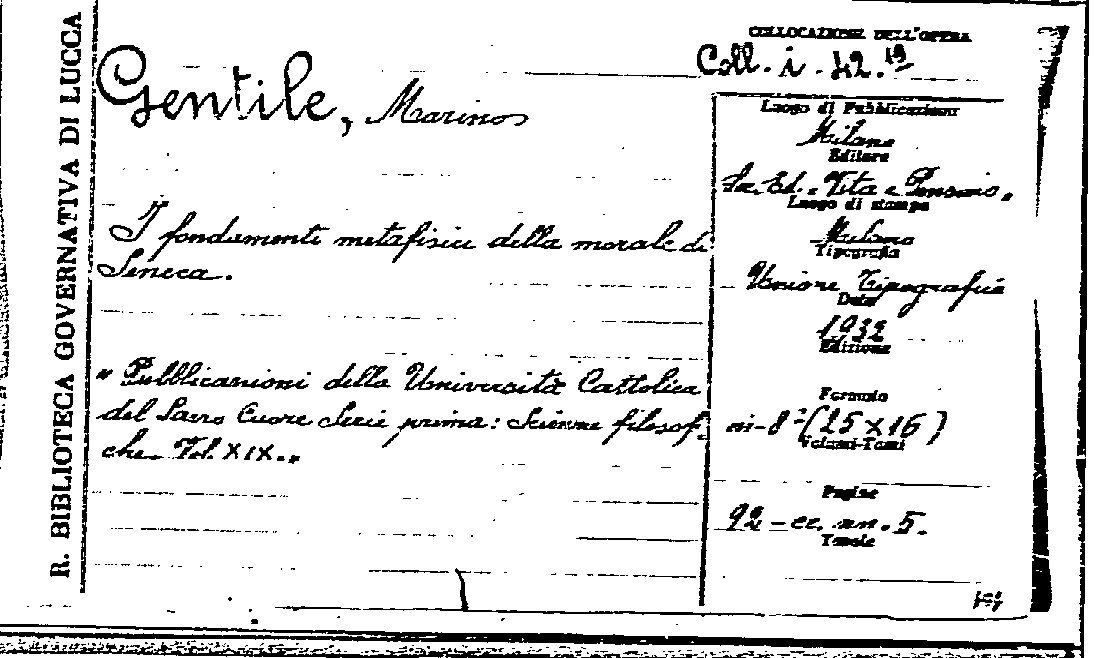 R. BIBLIOTECA GOVERNATIVA DI LUCCA
COLLOCAZIONE DELL'OPERA
Coll. i. 42. 19
Gentile, Marino
Luogo di Pubblicazione
Milano
Editore
Soc. Ed. "Vita e Pensiero"
Luogo di stampa
Milano
Tipografia
I fondamenti metafisici della morale di
Seneca.
Unione Tipografica
Data
1932
Edizione
" Pubblicazioni della Università Cattolica
del Sacro Cuore Serie prima: Scienze filosofi-
che. Vol. XIX. "
Formato
in-8° (25 x 16)
Volumi-Tomi
Pagine
92 - cc. nn. 5.
Tavole